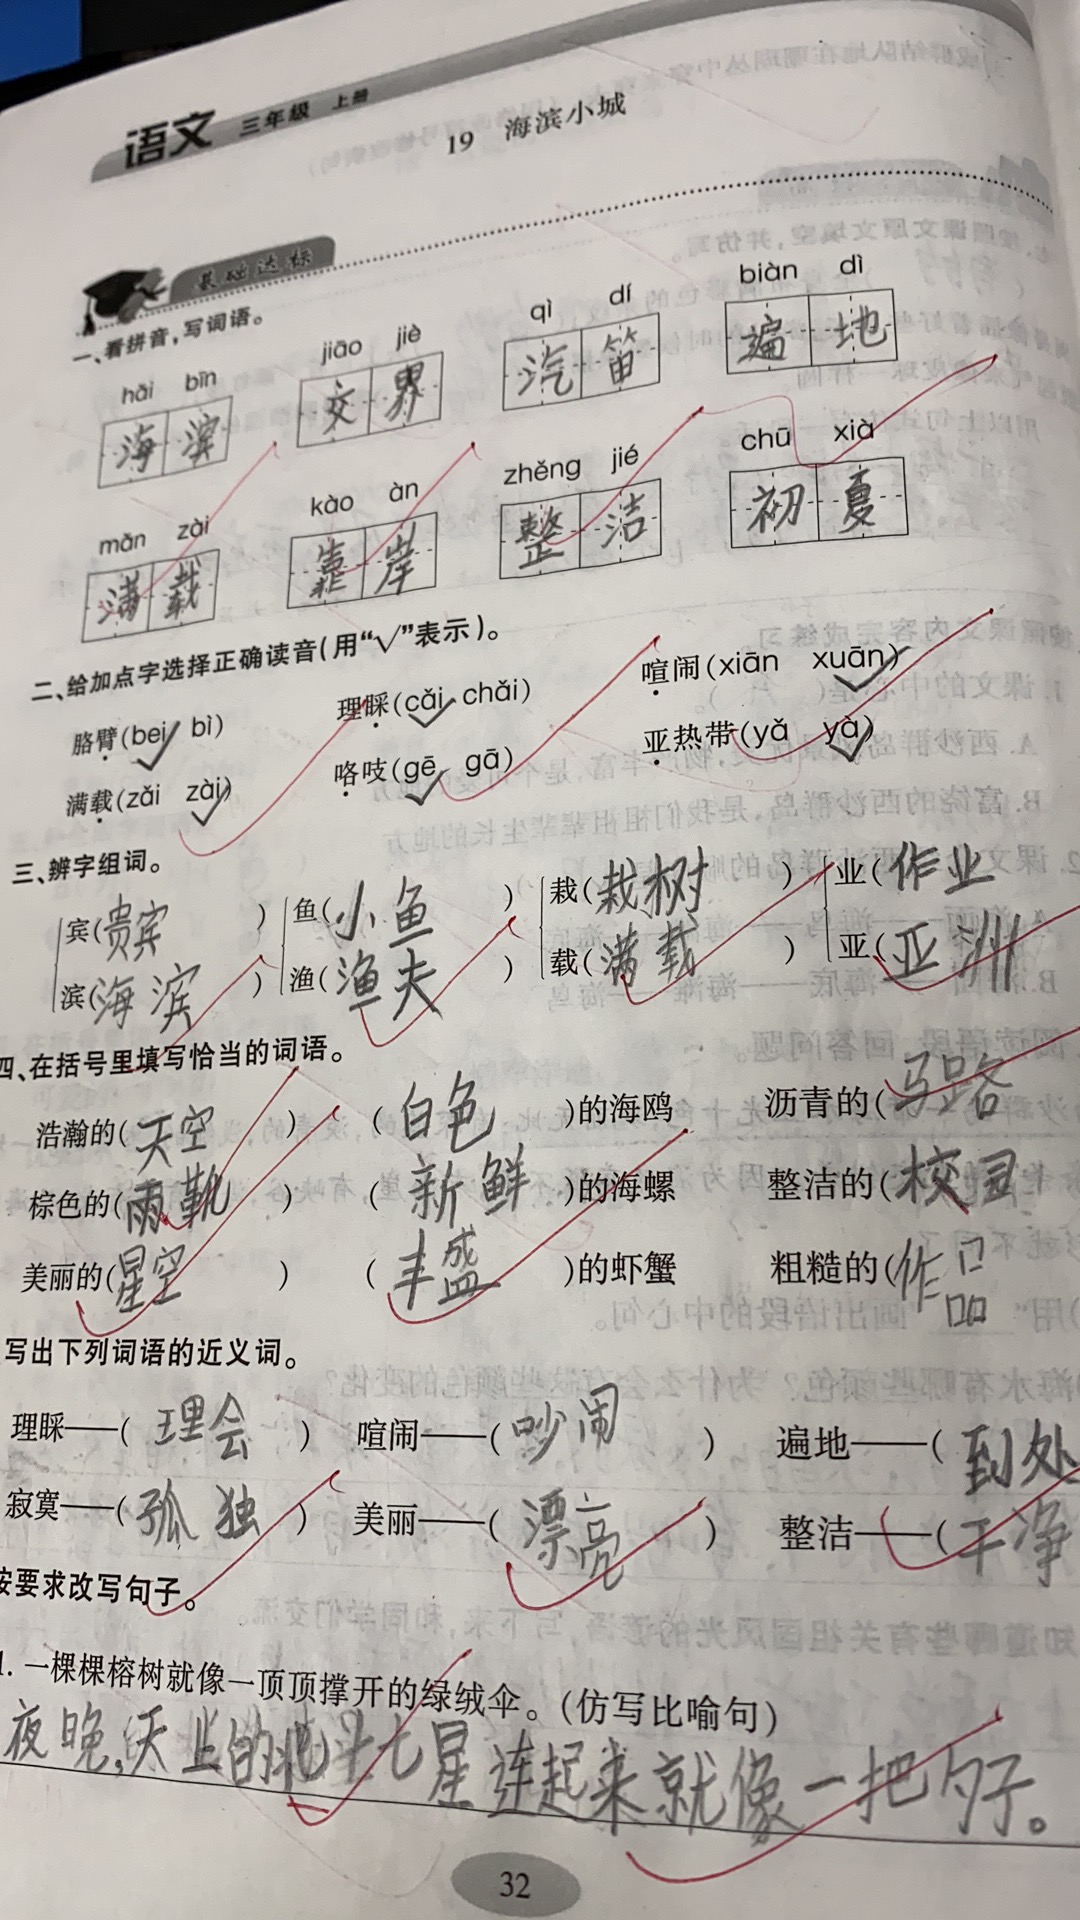 语文 三年级 上册
19 海滨小城
基础达标
一、看拼音,写词语。
hǎi bīn jiāo jiè qì dí biàn dì
海滨 交界 汽笛 遍地
mǎn zài kào àn zhěng jié chū xià
满载 靠岸 整洁 初夏
二、给加点字选择正确读音(用“√”表示)。
胳臂(bei√ bì) 理睬(cǎi√ chǎi) 喧闹(xiān xuān√)
满载(zǎi zài√) 咯吱(gē√ gā) 亚热带(yǎ yà√)
三、辨字组词。
宾(贵宾) 鱼(小鱼) 栽(栽树) 业(作业)
滨(海滨) 渔(渔夫) 载(满载) 亚(亚洲
四、在括号里填写恰当的词语。
浩瀚的(天空) (白色)的海鸥 沥青的(马路
棕色的(雨靴) (新鲜)的海螺 整洁的(校园
美丽的(星空) (丰盛)的虾蟹 粗糙的(作品
写出下列词语的近义词。
理睬——(理会) 喧闹——(吵闹) 遍地——(到处
寂寞——(孤独) 美丽——(漂亮) 整洁——(干净
按要求改写句子。
1. 一棵棵榕树就像一顶顶撑开的绿绒伞。(仿写比喻句)
夜晚,天上的北斗七星连起来就像一把勺子。
32